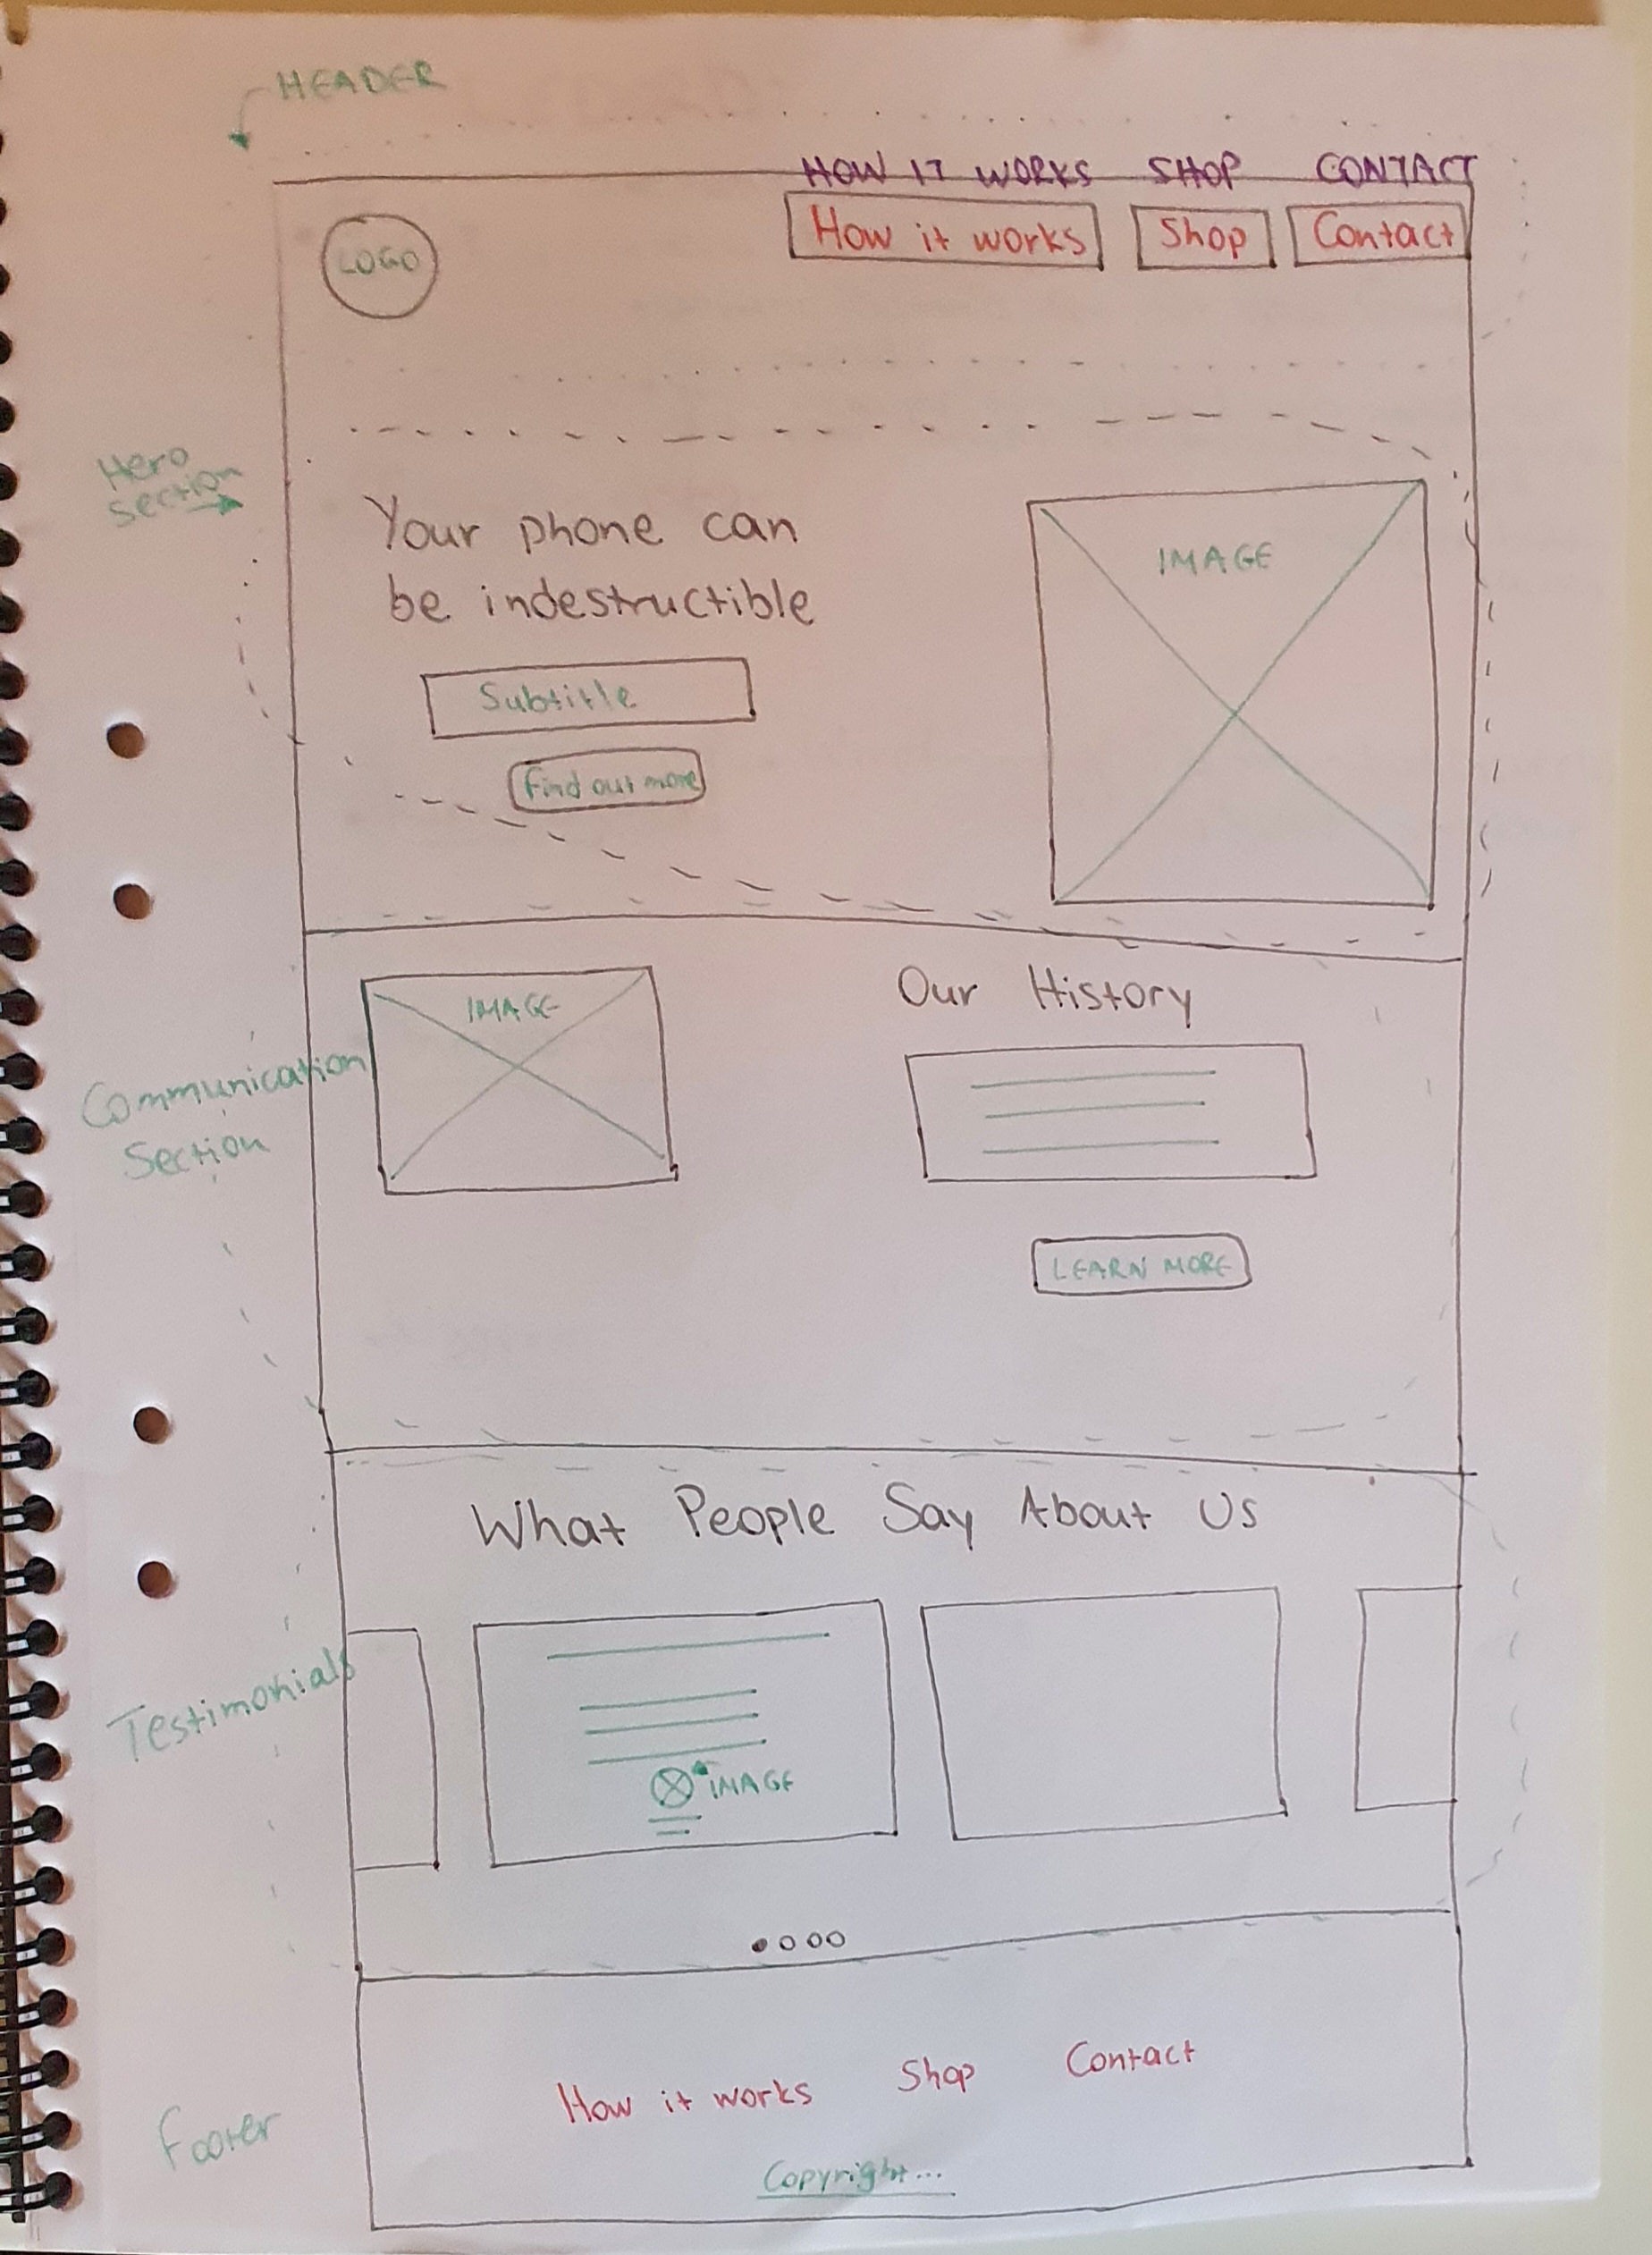 HEADER
HOW IT WORKS SHOP CONTACT
LOGO
How it works Shop Contact
Hero
section
Your phone can
be indestructible
IMAGE
Subtitle
Find out more
IMAGE
Our History
Communication
Section
LEARN MORE
What People Say About Us
Testimonials
IMAGE
How it works Shop Contact
Footer
Copyright...